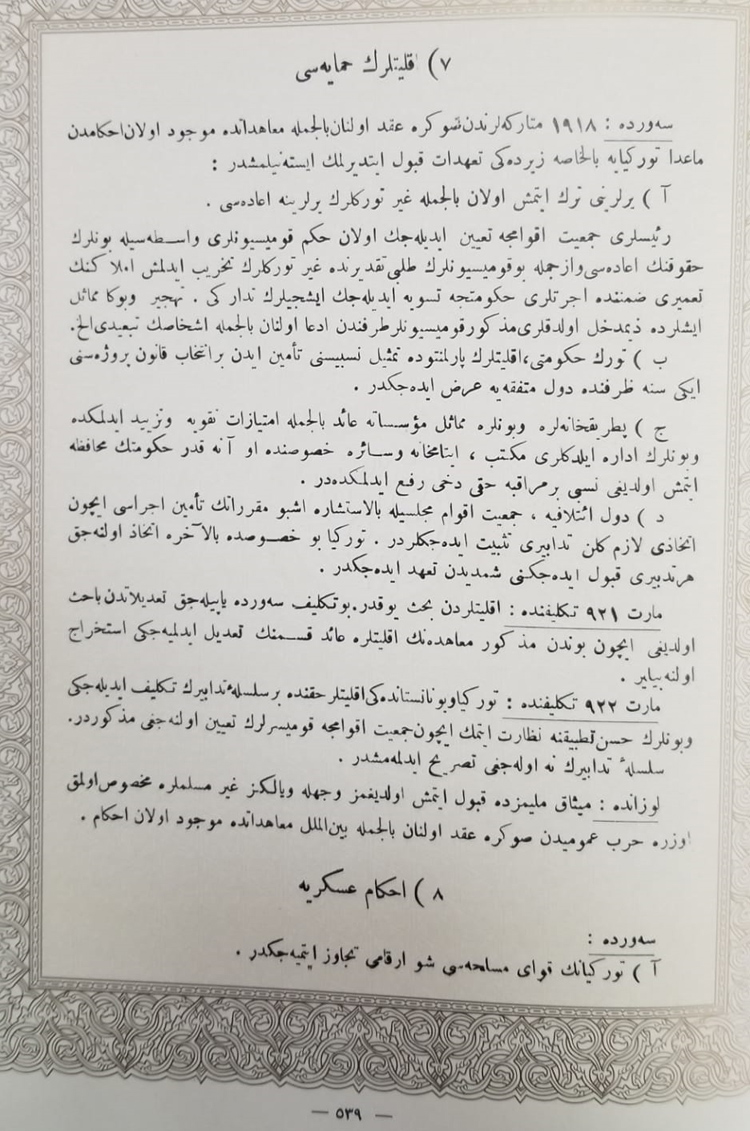 ٧) اقلیتلرك حمایه‌سی
سه‌ورده : ١٩١٨ متاركه‌لرندن صوكره عقد اولنان بالجمله معاهداتده موجود اولان احكامدن
ماعدا توركیایه بالخاصه زیرده‌كی تعهدات قبول ایتدیرلمك ایسته‌نیلمشدر :
آ ) یرلرینی ترك ایتمش اولان بالجمله غیر توركلرك یرلرینه اعاده‌سی .
رئیسلری جمعیت اقوامجه تعیین ایدیله‌جك اولان حكم قومیسیونلری واسطه‌سیله بونلرك
حقوقنك اعاده‌سی وازجمله بو قومیسیونلرك طلبی تقدیرنده غیر توركلرك تخریب ایدلمش املاكنك
تعمیری ضمننده اجرتلری حكومتجه تسویه ایدیله‌جك ایشجیلرك تداركی . تهجیر وبوكا مماثل
ایشلرده ذیمدخل اولدقلری مذكور قومیسیونلر طرفندن ادعا اولنان بالجمله اشخاصك تبعیدی الخ.
ب ) تورك حكومتی، اقلیتلرك پارلمنتوده تمثیل نسبیسنی تأمین ایدن بر انتخاب قانون پروژه‌سنی
ایكی سنه ظرفنده دول متفقه‌یه عرض ایده‌جكدر .
ج ) پطریقخانه‌لره وبونلره مماثل مؤسساته عائد بالجمله امتیازات تقویه وتزیید ایدلمكده
وبونلرك اداره ایلدكلری مكتب ، ایتامخانه وسائره خصوصنده او آنه قدر حكومتك محافظه
ایتمش اولدیغی نسبی بر مراقبه حقی دخی رفع ایدلمكده‌در .
د ) دول ائتلافیه ، جمعیت اقوام مجلسیله بالاستشاره اشبو مقرراتك تأمین اجراسی ایچون
اتخاذی لازم كلن تدابیری تثبیت ایده‌جكلردر . توركیا بو خصوصده بالآخره اتخاذ اولنه‌جق
هر تدبیری قبول ایده‌جكنی شمدیدن تعهد ایده‌جكدر .
مارت ٩٢١ تكلیفنده : اقلیتلردن بحث یوقدر. بو تكلیف سه‌ورده یاپیله‌جق تعدیلاتدن باحث
اولدیغی ایچون بوندن مذكور معاهده‌نك اقلیتلره عائد قسمنك تعدیل ایدلمیه‌جكی استخراج
اولنه‌بیلیر .
مارت ٩٢٢ تكلیفنده : توركیا ویونانستانده‌كی اقلیتلر حقنده بر سلسلۀ تدابیرك تكلیف ایدیله‌جكی
وبونلرك حسن تطبیقنه نظارت ایتمك ایچون جمعیت اقوامجه قومیسرلرك تعیین اولنه‌جغی مذكوردر.
سلسلۀ تدابیرك نه اوله‌جغی تصریح ایدلمه‌مشدر .
لوزانده : میثاق ملیمزده قبول ایتمش اولدیغمز وجهله ویالكز غیر مسلملره مخصوص اولمق
اوزره حرب عمومیدن صوكره عقد اولنان بالجمله بین‌الملل معاهداتده موجود اولان احكام .
٨ ) احكام عسكریه
سه‌ورده :
آ ) توركیانك قوای مسلحه‌سی شو ارقامی تجاوز ایتمیه‌جكدر .
— ٥٣٩ —